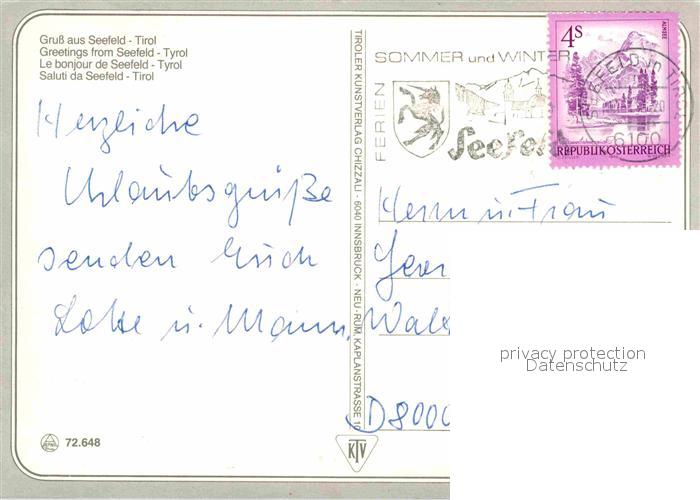 Gruß aus Seefeld - Tirol
Greetings from Seefeld - Tyrol
Le bonjour de Seefeld - Tyrol
Saluti da Seefeld - Tirol
Herzliche
Urlaubsgrüße
senden Euch
Lotte u. Mann.
72.648
TIROLER KUNSTVERLAG CHIZZALI - 6040 INNSBRUCK - NEU-RUM, KAPLANSTRASSE 10
KTV
SOMMER und WINTER
FERIEN
Seefel
4S
ALMSEE
REPUBLIK ÖSTERREICH
SEEFELD in TIROL
6100
Herrn u. Frau
Wal
D 8000
privacy protection
Datenschutz